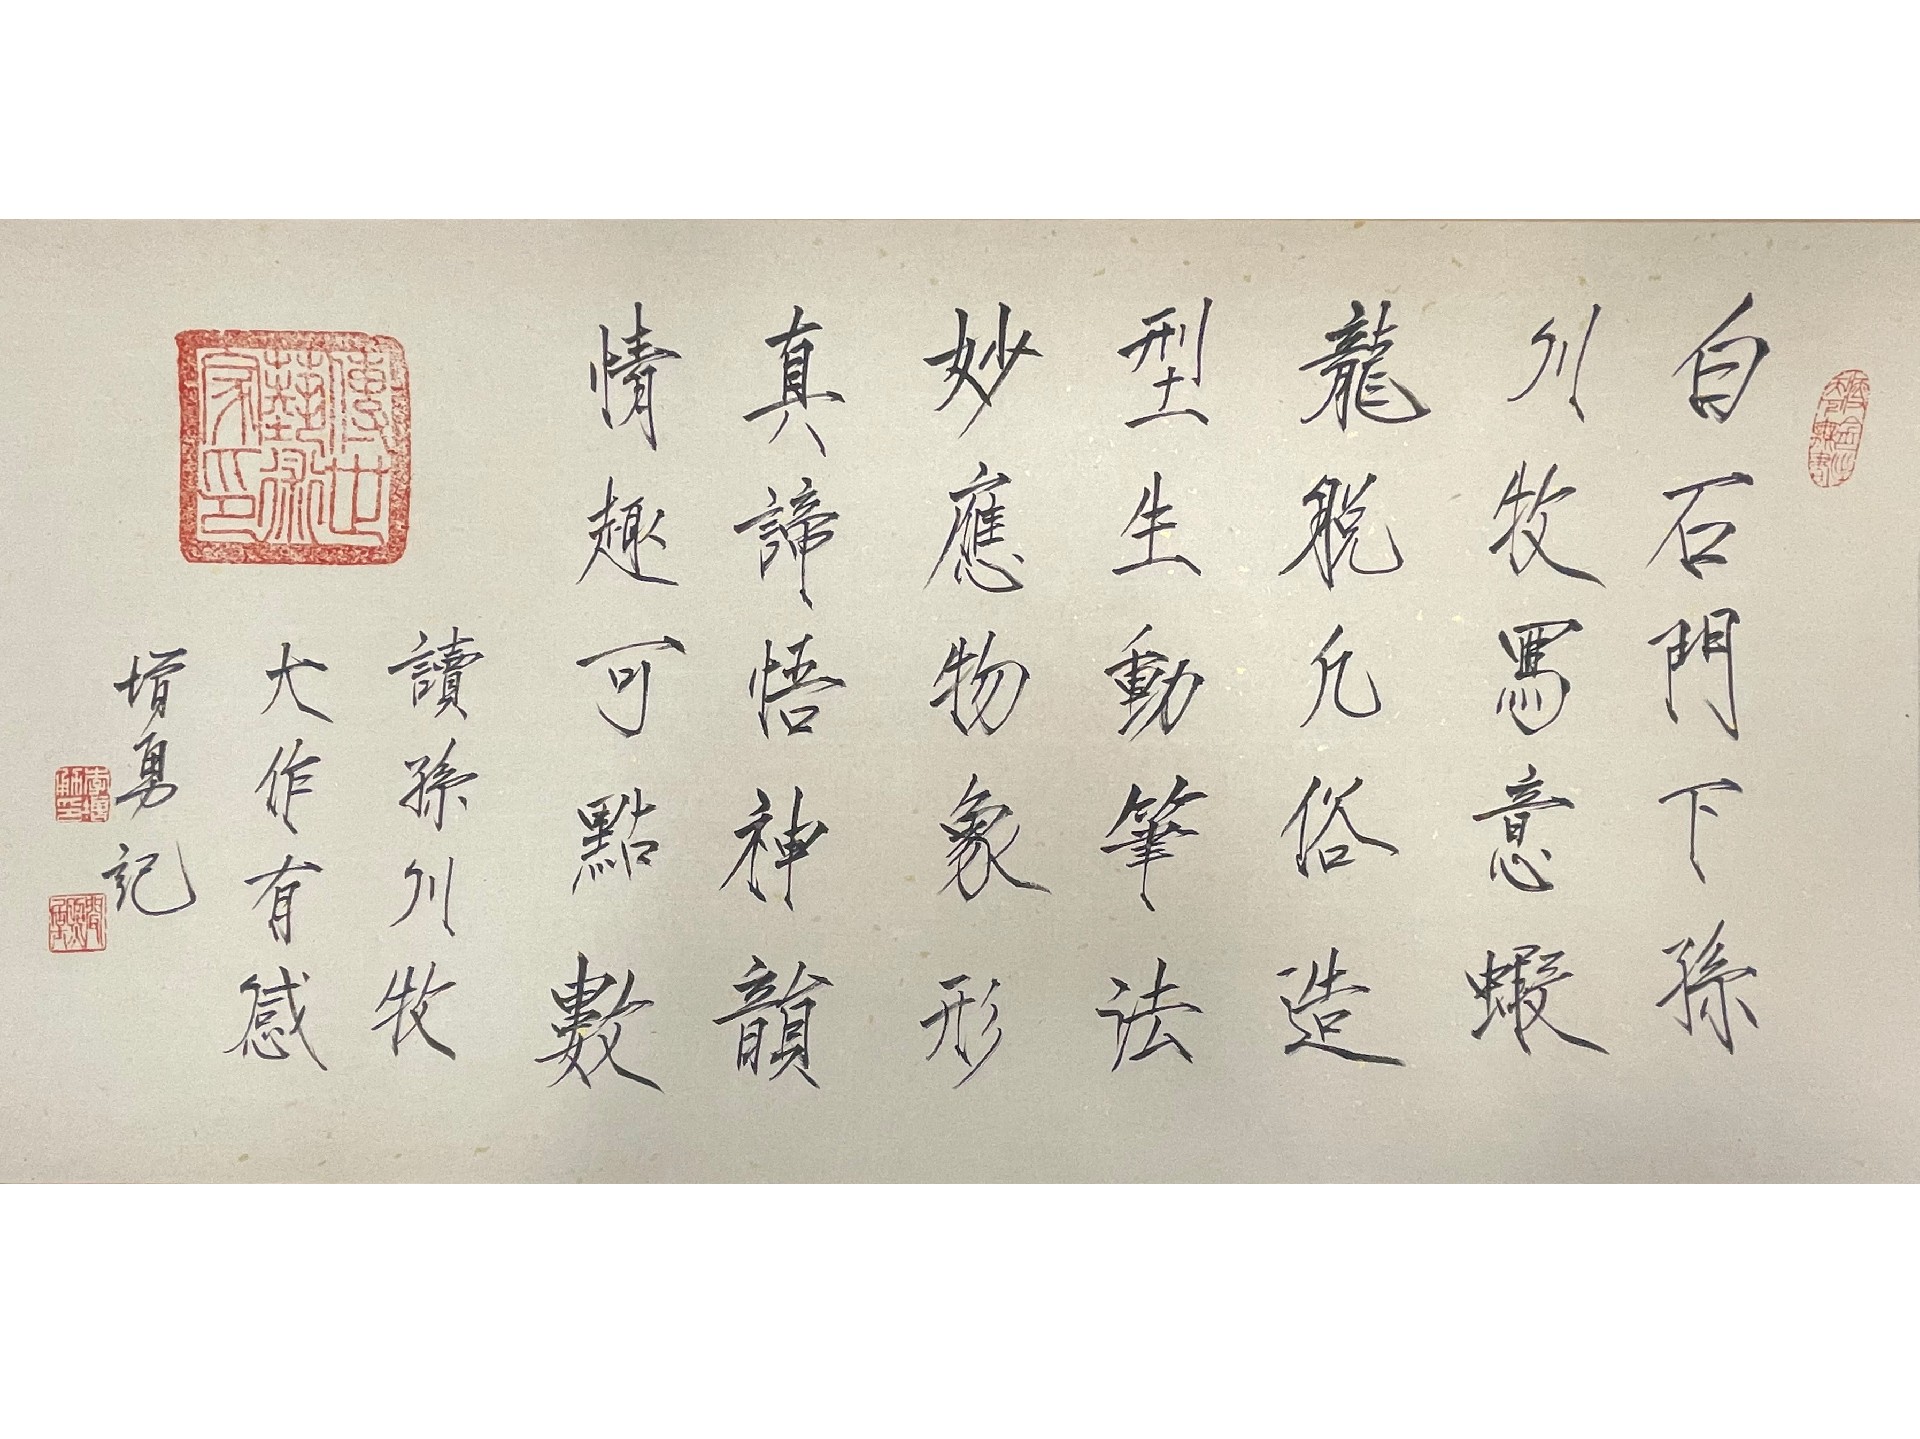 白石門下孫
川牧寫意蝦
龍脫凡俗造
型生動筆法
妙應物象形
真諦悟神韻
情趣可點數
讀孫川牧
大作有感
增勇記
傳世藝術家印